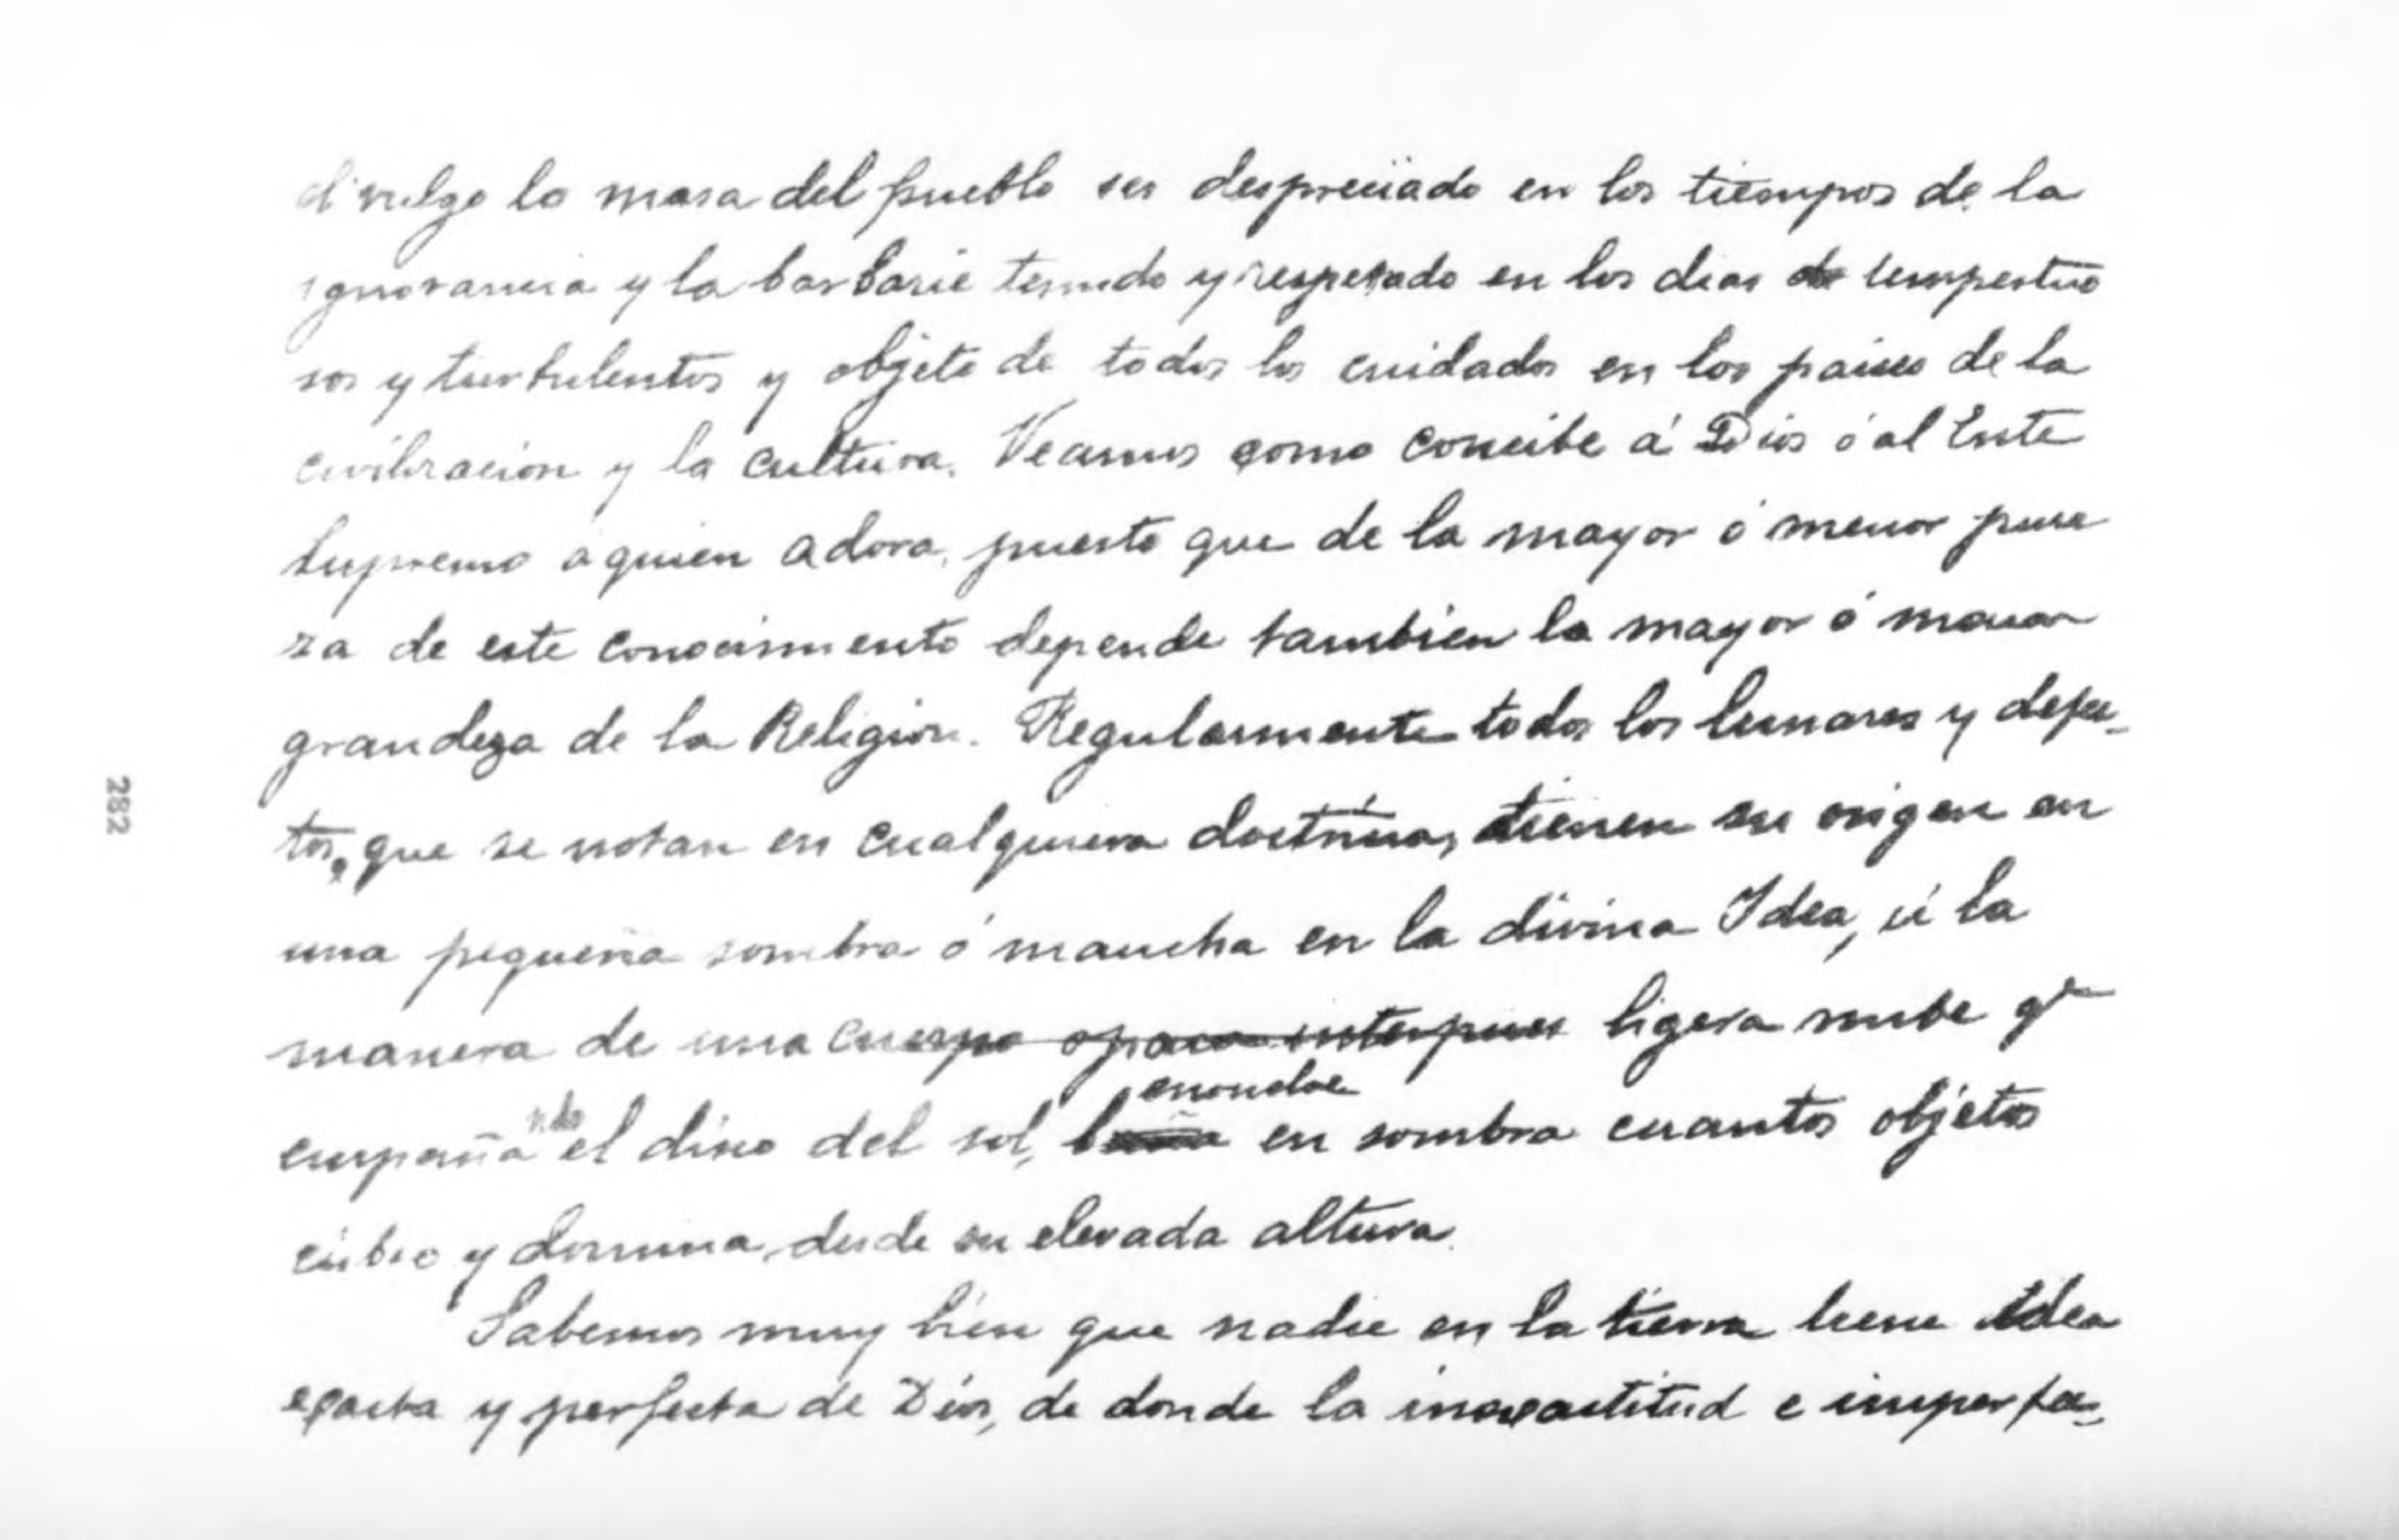 el vulgo la masa del pueblo ser despreciado en los tiempos de la
ignorancia y la barbarie temido y respetado en los dias de tempestuo
sos y turbulentos y objeto de todos los cuidados en los paises de la
civilizacion y la cultura. Veamos como concibe á Dios ó al Ente
Supremo a quien adora, puesto que de la mayor ó menor pure
za de este conocimiento depende tambien la mayor ó menor
grandeza de la Religion. Regularmente todos los lunares y defec-
tos, que se notan en cualquiera doctrina, tienen su origen en
una pequeña sombra ó mancha en la divina Idea, á la
manera de una cuerpo opaco interpues ligera nube qe
enc
empaña ndo el disco del sol, baña en sombra cuantos objetos
cubre y domina desde su elevada altura.
Sabemos muy bien que nadie en la tierra tiene idea
exacta y perfecta de Dios, de donde la inexactitud e imperfec-
282